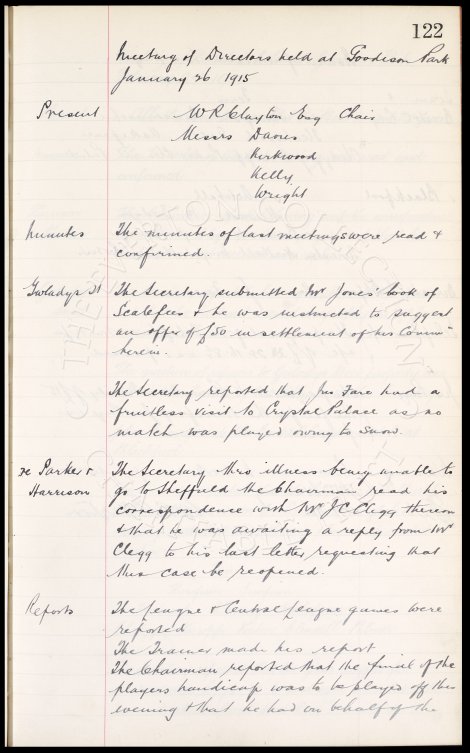 122
Meeting of Directors held at Goodison Park
January 26 1915
Present W R Clayton Esq Chair
Messrs Davies
Kirkwood
Kelly
Wright
Minutes The minutes of last meetings were read &
confirmed.
Gwladys St The Secretary submitted Mr Jones' book of
Scalefees & he was instructed to suggest
an offer of £50 in settlement of his Comm
herein.
The Secretary reported that Jno Fare had a
fruitless visit to Crystal Palace as no
match was played owing to snow.
re Parker &
Harrison The Secretary thro illness being unable to
go to Sheffield the Chairman read his
correspondence with Mr J C Clegg thereon
& that he was awaiting a reply from Mr
Clegg to his last letter requesting that
this case be reopened.
Reports The League & Central League games were
reported
The Trainer made his report
The Chairman reported that the final of the
players handicap was to be played off this
evening & that he had on behalf of the